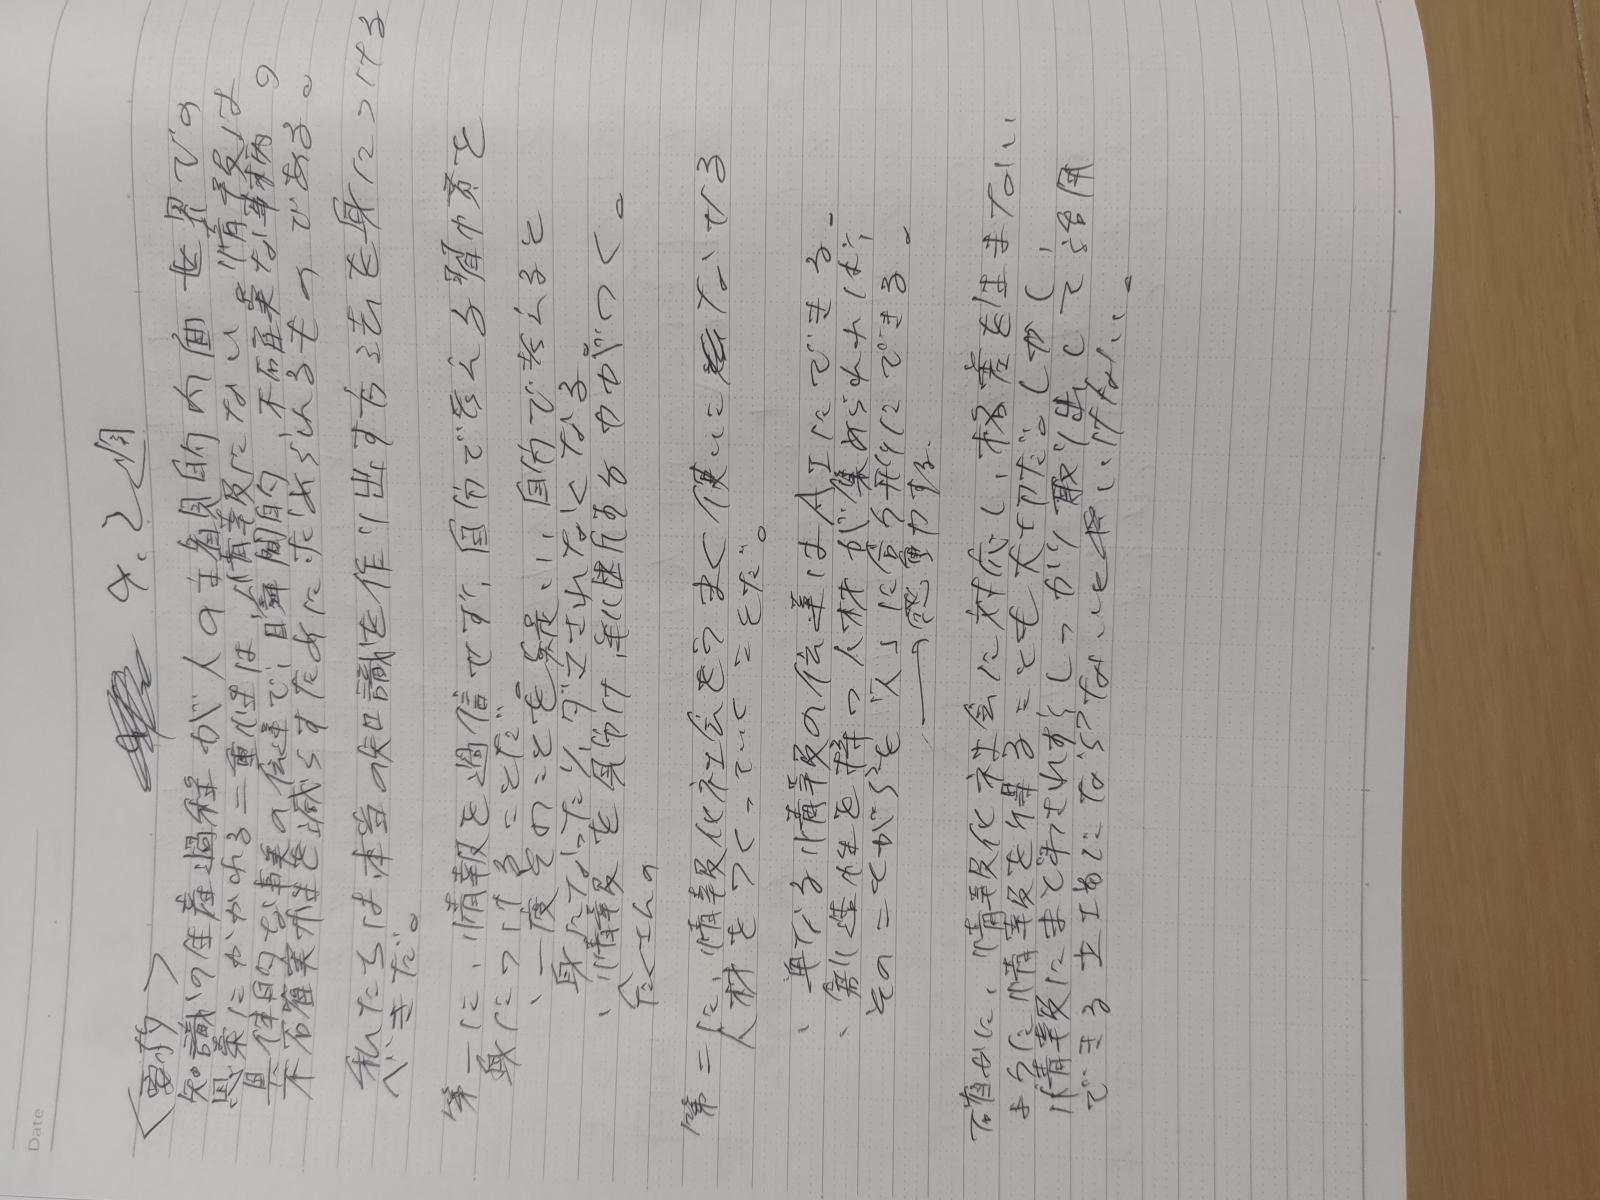 Date
4.2週
〈要約〉
知識の生産過程が人の主観的内面世界での
思案にかかれる一重性は情報にない 情報は
具体的な事実の伝達で日常間的 不確実な事柄の
不確実性を減らすために求められるものである。
私たちは本当の知識を作り出す方法を身につける
べきだ。
第一に、情報を過信せず、自分で考える習慣を
身につけることだ。
・一度そのことを疑い、自分で考えると
身になったりダマされなくなる。
・情報を見分け、判断する力がつく。
第二に、情報化社会をうまく使いこなしてる
人材をつくっていくことだ。
・単なる情報の伝達はAIにできる。
・創造性を持つ人材が集められれば、
そのことがらを
できる。
→感動力する。
確かに、情報化社会に対応し、格差を生まない
ように情報を得ることも大切だ。しかし、
情報にまどわされず、しっかり取り出して活用
できる立場にならないといけない。